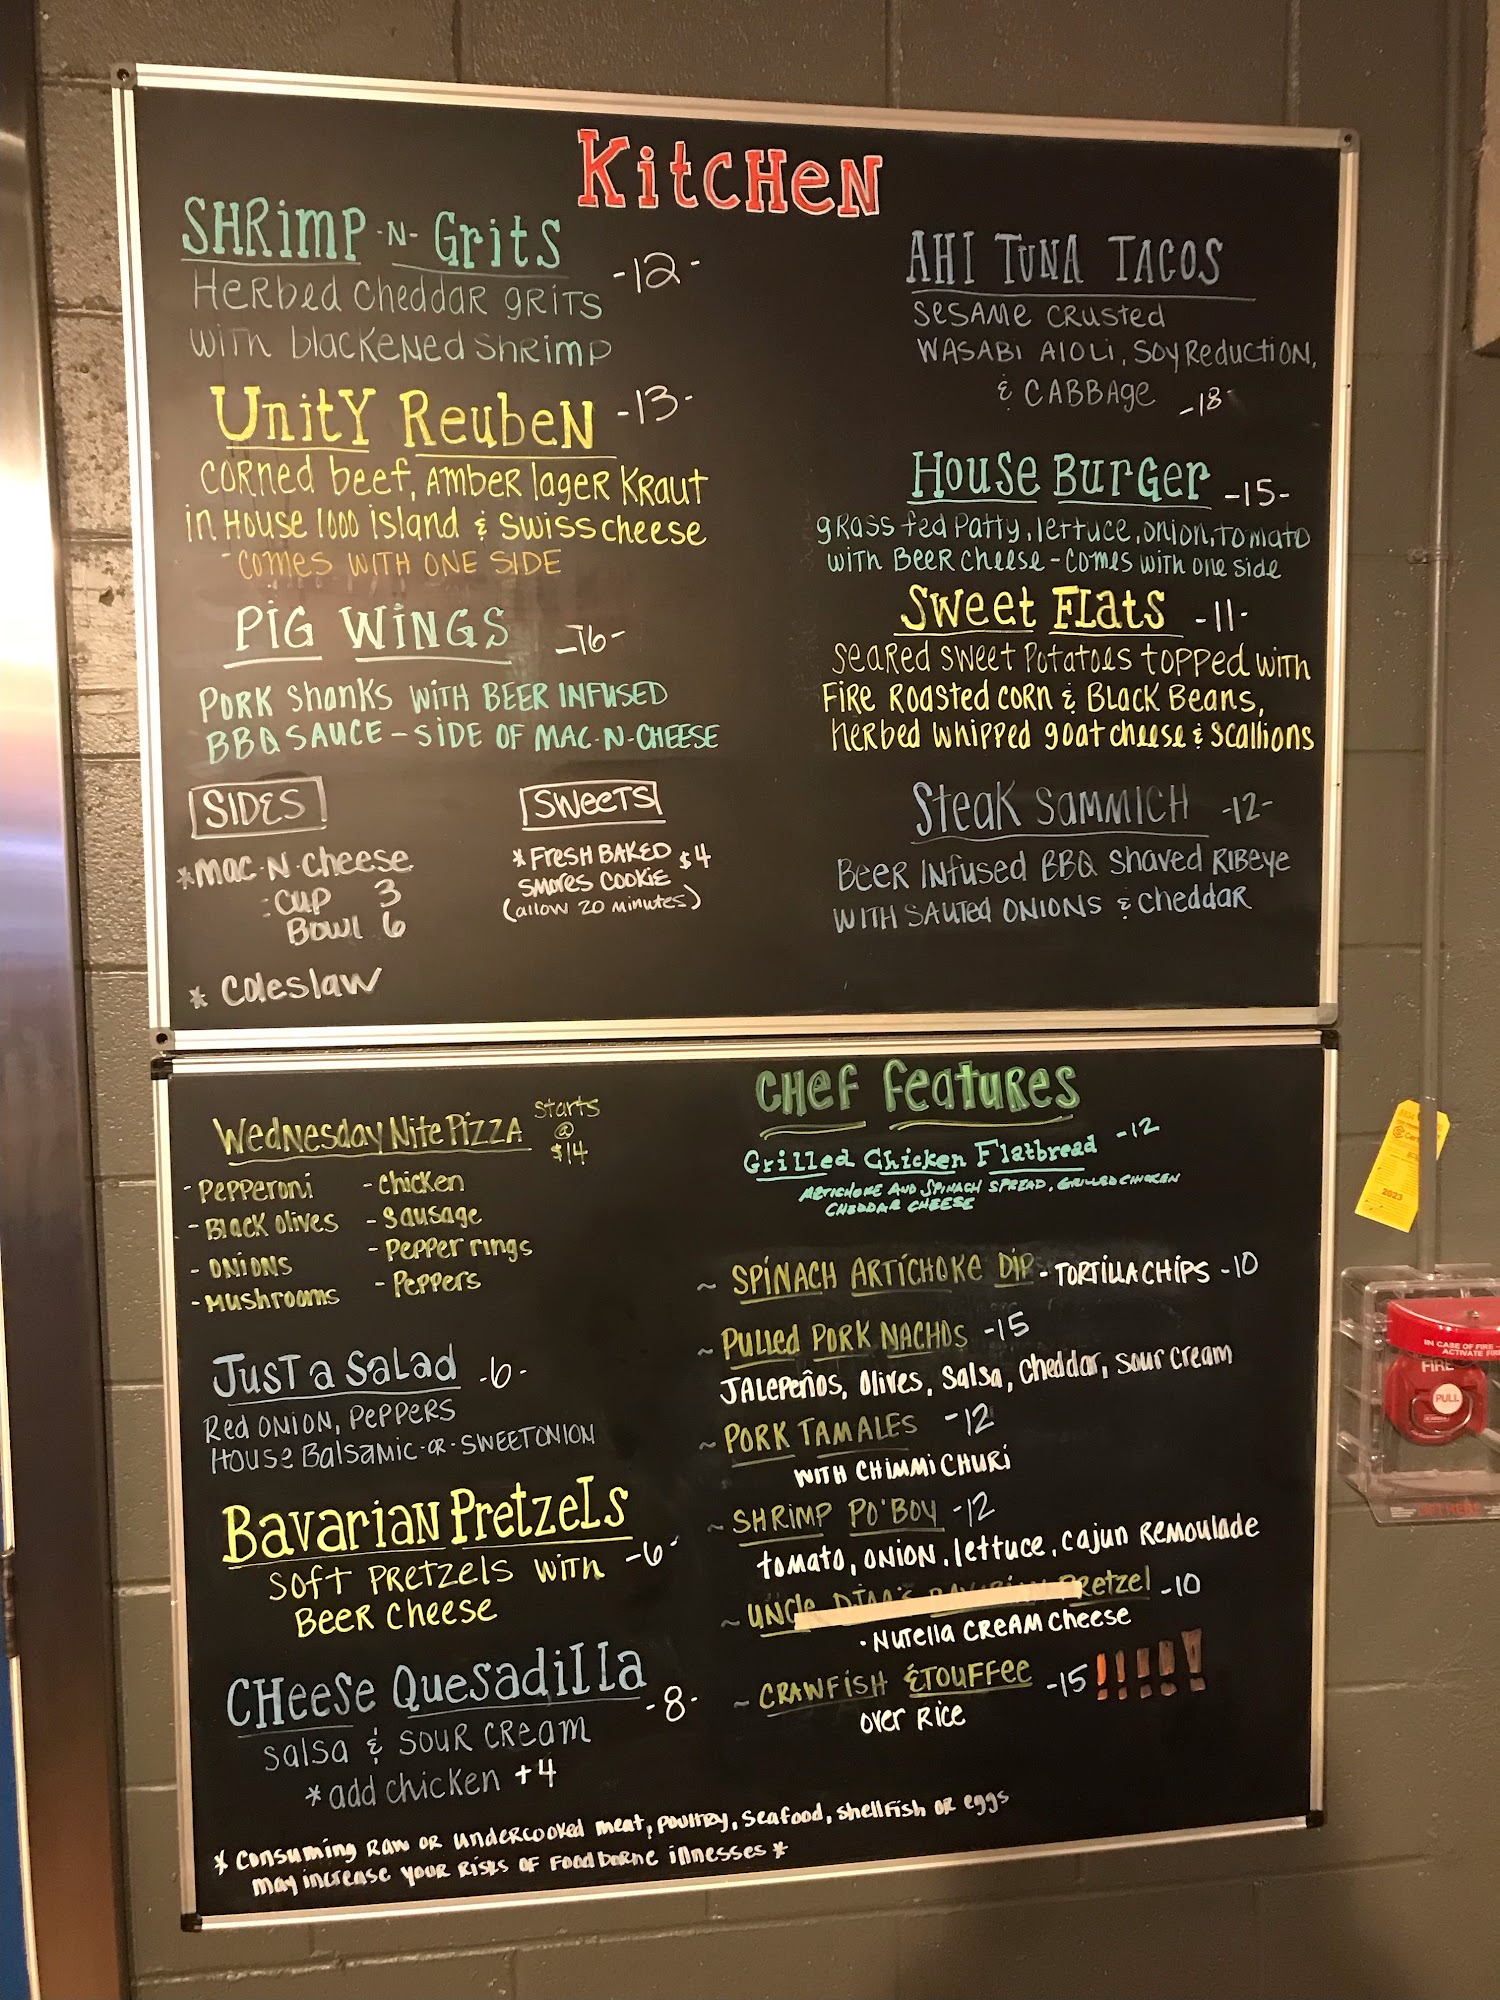 KitcHeN
SHRimP -N- Grits
-12-
HeRbed cheddar gRiTS
with blacKeNed SHRimp
UnitY ReubeN -13-
CORNed beef, AmbeR lageR KRaut
in House 1000 island & Swiss cheese
-Comes WITH ONE SIDE
PiG WiNGS -16-
PORK Shanks WiTH BEER INFUSED
BBQ SAUCE - SIDE OF MAC-N-CHEESE
SIDES
*Mac-N-Cheese
:Cup 3
Bowl 6
* Coleslaw
SWeeTS
* FResH BAKED $4
SMORES COOKiE
(allow 20 minutes)
AHI TUNA TACOS
SeSAMe CRUSTed
WASABi AIOLi, SOY ReducTiON,
& CABBAge -18-
House BurGer -15-
gRass fed Patty, lettuce, onion, Tomato
with BeeR Cheese - Comes with one side
SWeet Flats -11-
SeaRed SWeet Potatoes topped with
FiRe Roasted CoRN & Black Beans,
HeRbed whipped goat cheese & Scallions
SteaK SAMMICH -12-
BeeR INfused BBQ Shaved RiBeye
WITH SAUTed ONIONS & Cheddar
WedNesday Nite PizzA starts
@
$14
- Pepperoni
- Black olives
- ONiONS
- Mushrooms
- Chicken
- Sausage
- Pepper rings
- Peppers
JusT a SaLad -6-
Red ONiON, PePPeRS
House BalsaMic -OR- SWEET ONION
BavariaN PretzeLs
SOFT PRETZELS WiTH -6-
BEER CHeese
CHeeSe QuesadiLLa -8-
Salsa & SOUR CReam
*add chicken +4
CHeF FeatuRes
Grilled Chicken Flatbread -12
ARTICHOKE AND SPINACH SPREAD, GRILLED CHICKEN
CHEDDAR CHEESE
~ SPiNACH ARTiCHOKe DiP - TORTiLLA CHiPS -10
~ PuLLed PORK NACHOS -15
JALepeños, olives, Salsa, Cheddar, Sour CReam
~ PORK TAMALES -12
WiTH CHiMMiCHURi
~ SHRiMP PO'BOY -12
tomato, ONiON, lettuce, Cajun ReMoulade
~ UNCle Pretzel -10
· NuTella CREAM Cheese
~ CRAWFiSH ÉTOUFFee -15 !!!!!
OVER RiCe
* Consuming Raw OR undeRcooked meat, poultry, Seafood, shellfish OR eggs
may increase your Risks OF Foodborne illnesses *
2023
IN CASE OF FIRE
ACTIVATE FIRE
FIRE
PULL